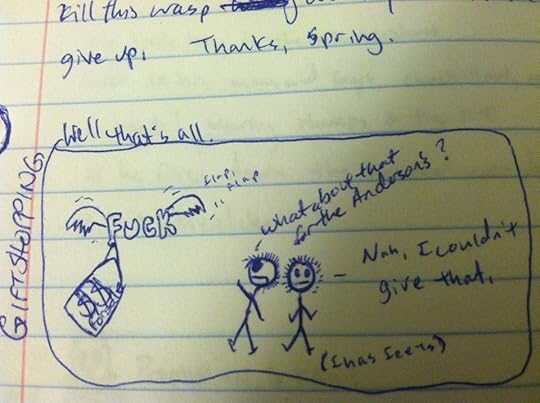 kill this wasp
give up. Thanks, Spring.
Well that's all.
GIFT SHOPPING
flap
FUCK
$$
for sale
what about that
for the Anderson's?
Nah, I couldn't
give that.